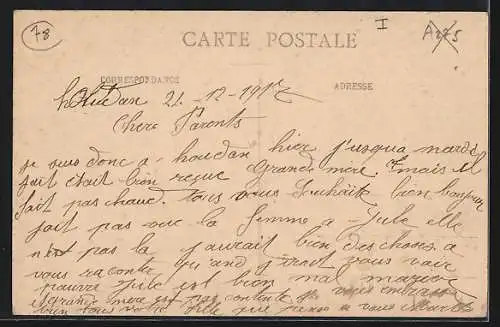 78
I
A275
CARTE POSTALE
CORRESPONDANCE
ADRESSE
houdan 21-12-1917
Chers Parents
je suis donc a houdan hier jusqua mardi
fait était bien reçue grand mère. mais il
fait pas chaud. tous vous Souhaite bien bonjour
fait pas que la femme a Jule elle
n'est pas la j'aurait bien des choses a
vous raconte quand j'irait vous voir
pauvre Jule est bien mal marier
grand mère est pas contente vous embrasse
bien tous votre fille qui pense a vous